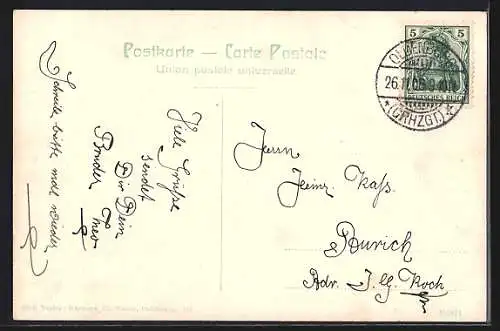 Postkarte — Carte Postale
Union postale universelle
5 5
DEUTSCHES REICH
OLDENBURG
26.11.05.9-10
*(GRHZGT)*
Schreibe bitte mal wieder
Viele Grüße
sendet
Dir Dein
Bruder Theo
Herrn
Heinr. Kass.
Aurich
Adr. J. G. Koch